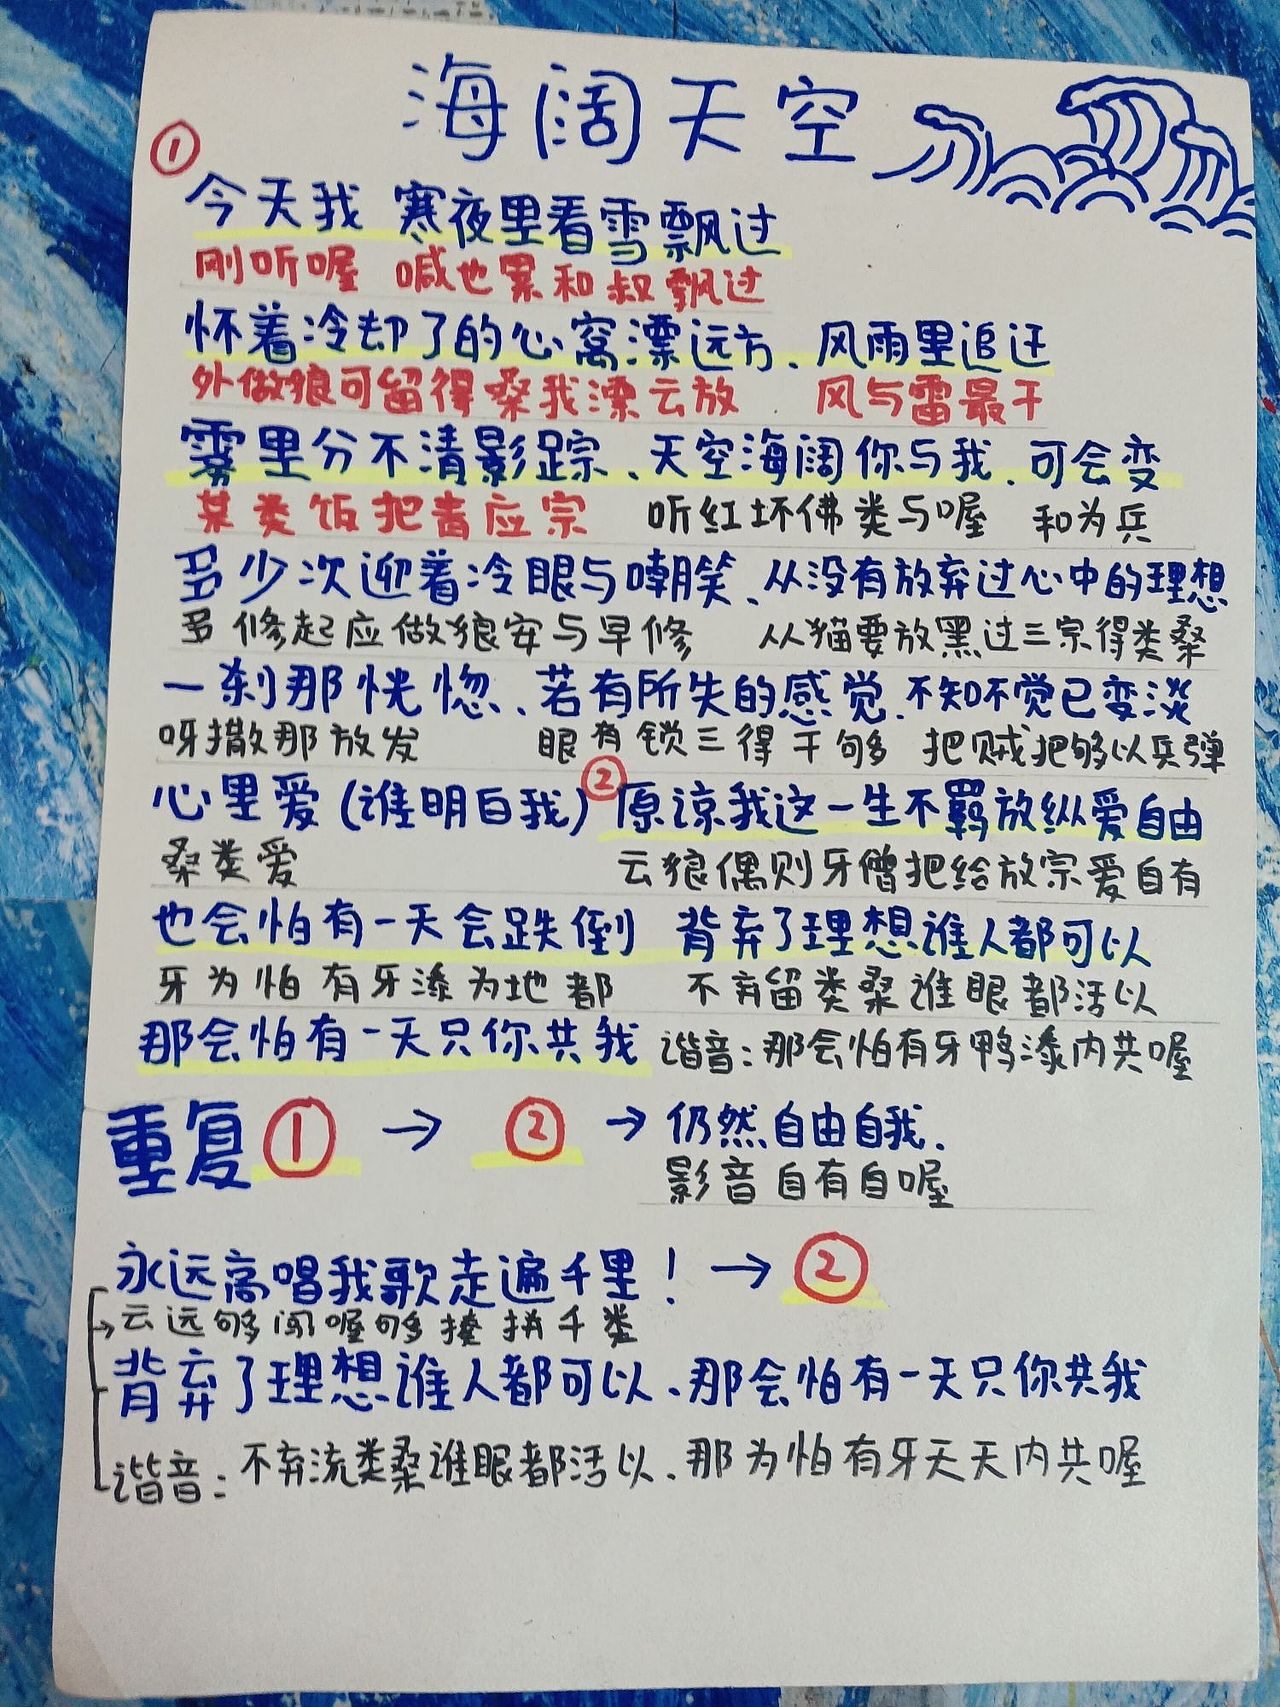 海阔天空
①
今天我 寒夜里看雪飘过
刚听喔 喊也累和叔飘过
怀着冷却了的心窝漂远方、风雨里追
外做狼可留得桑我漂云放 风与雷最干
雾里分不清影踪、天空海阔你与我、可会变
某类饭把青应宗 听红坏佛类与喔 和为兵
多少次迎着冷眼与嘲笑、从没有放弃过心中的理想
多修起应做狼安与早修 从猫要放黑过三宗得类桑
一刹那恍惚、若有所失的感觉、不知不觉已变淡
呀撒那放发 眼有锁三得干够 把贼把够以兵弹
心里爱(谁明白我) ②原谅我这一生不羁放纵爱自由
桑类爱 云狼偶则牙僧把给放宗爱自有
也会怕有一天会跌倒 背弃了理想谁人都可以
牙为怕有牙添为地都 不弃留类桑谁眼都活以
那会怕有一天只你共我 谐音：那会怕有牙鸭添内共喔
重复① → ② → 仍然自由自我、
影音自有自喔
永远高唱我歌走遍千里！→ ②
→云远够闯喔够揍拼千类
背弃了理想谁人都可以、那会怕有一天只你共我
谐音：不弃流类桑谁眼都活以、那为怕有牙天天内共喔